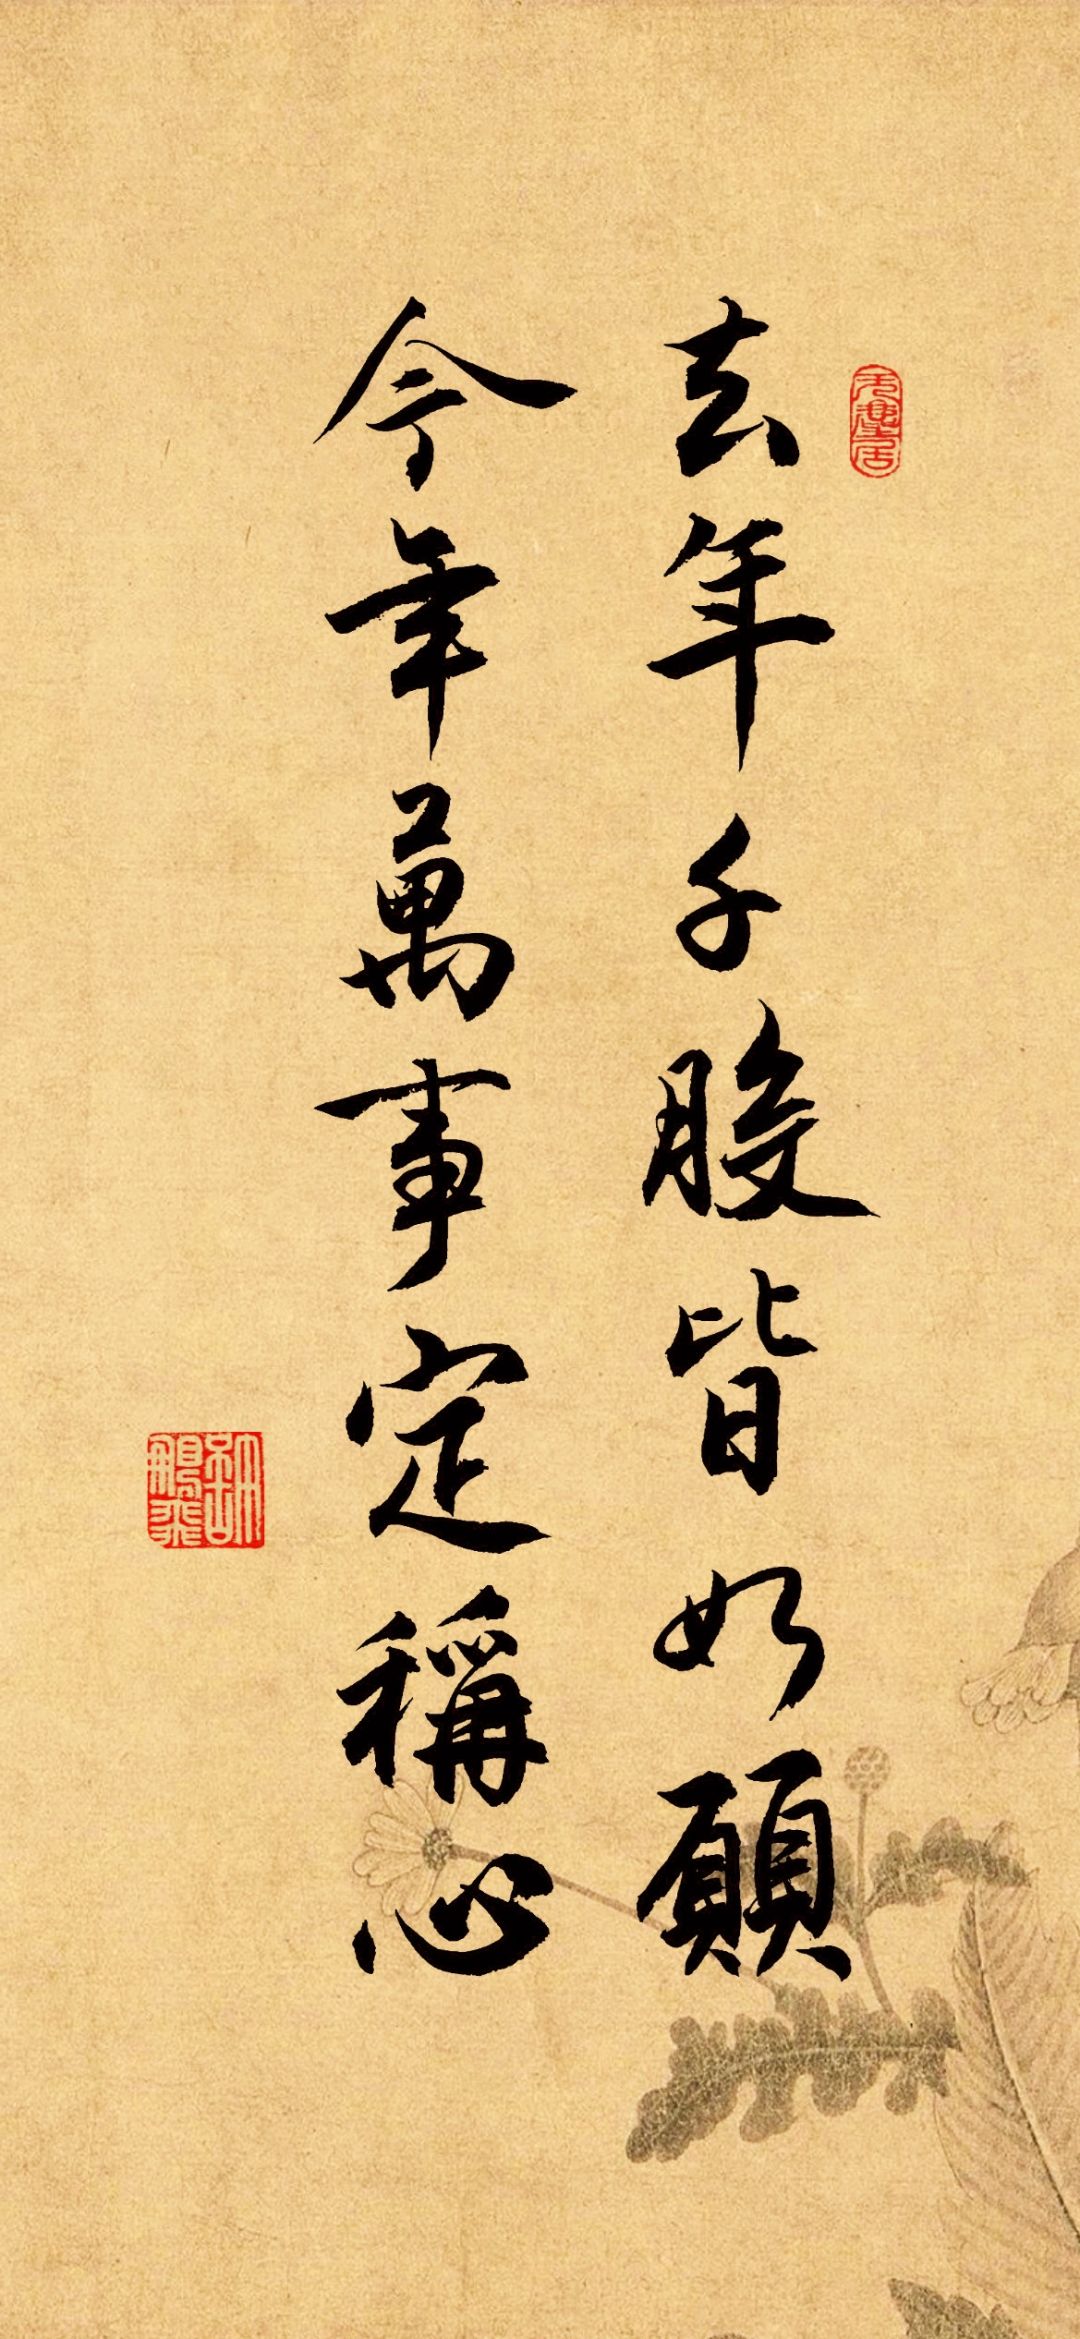 去年千般皆如願
今年萬事定稱心